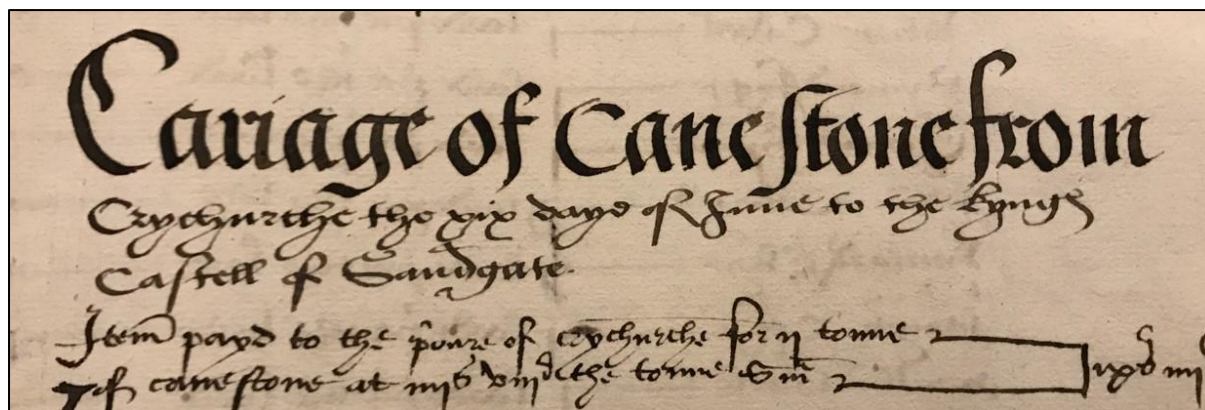 Cariage of Cane stone from
Crychurche the xix daye of June to the kyngs
Castell of Sandgate
Item payd to the pour of crychurche for ii tonne
of cane stone at iiiis viiid the tonne Sm ixs iiii